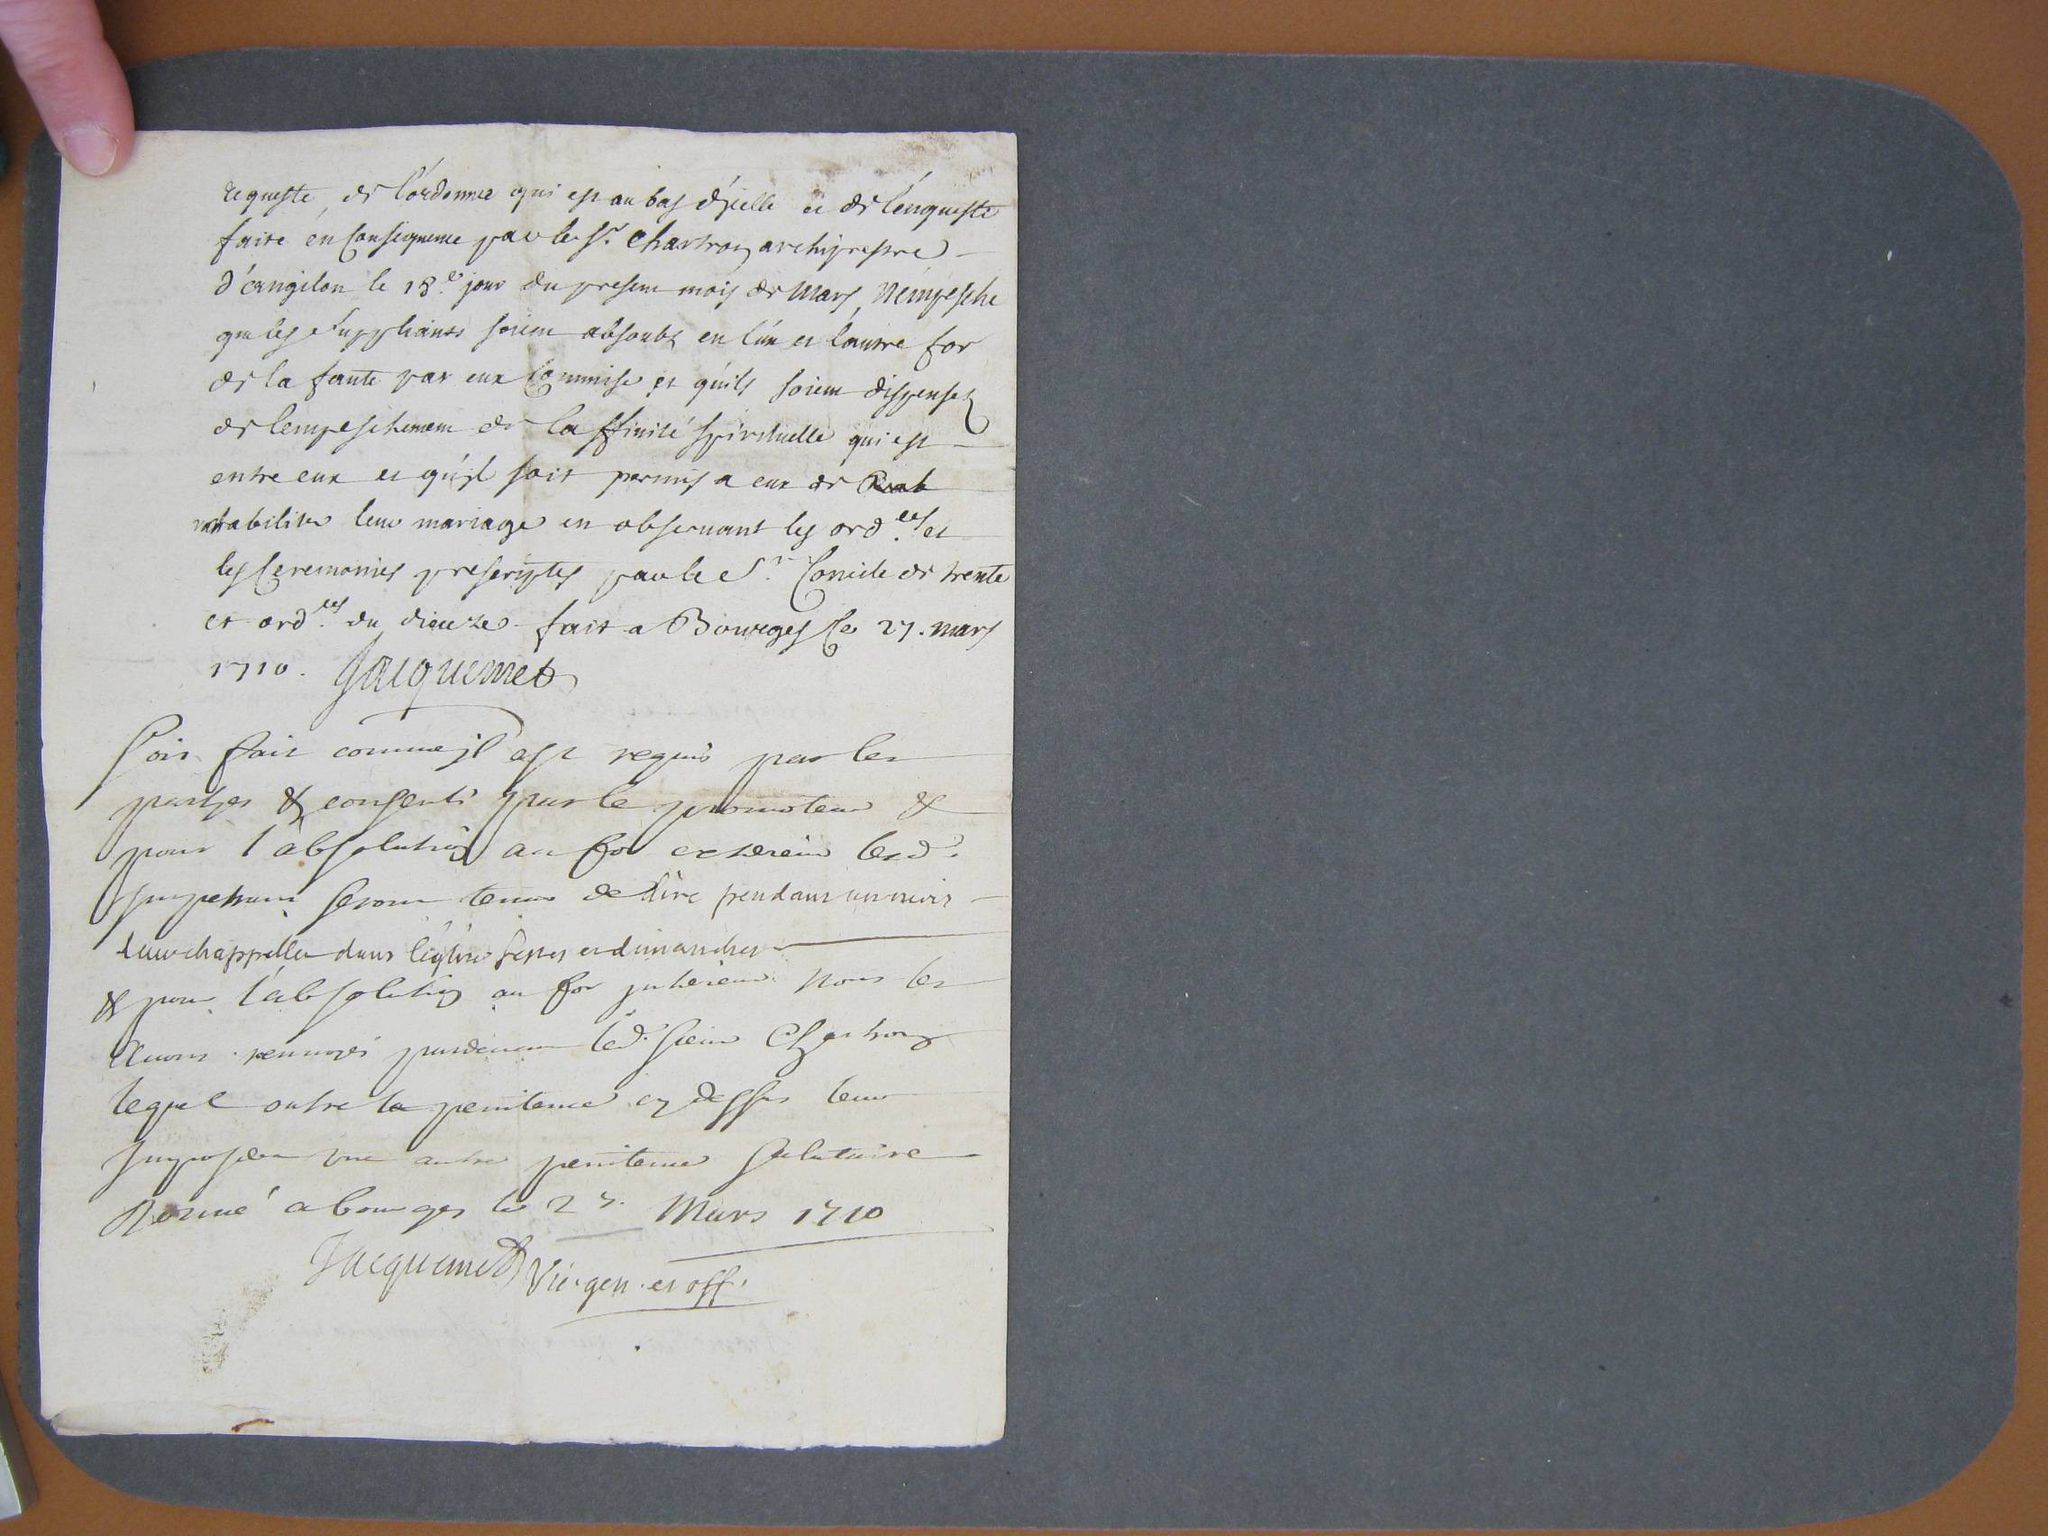 requeste, de l'ordonnce qui est au bas d'icelle et de l'enqueste
faite en consequence par le Sr. Chartron archiprestre
d'angilon le 18.e jour du present mois de mars, n'empesche
que les supplians soient absoubs en l'un et l'autre for
de la faute par eux commise et qu'ils soient dispensez
de lempeschement de laffinité spirituelle qui est
entre eux et qu'il soit permis a eux de
rehabiliter leur mariage en observant les ord.ces et
les ceremonies prescriptes par le St. Concile de trente
et ord.ces du dioceze fait a Bourges ce 27. mars
1710. Jacquemet
Soit fait comme il est requis par les
parties & consenti par le promoteur &
pour l'absolution au for exterieur lesd.
impetrans seront tenus de dire pendant un mois
leur chappellet dans l'églize festes et dimanches
& pour l'absolution au for interieur nous les
avons renvoiés pardevant led. sieur Chartron
lequel outre la penitence cy dessus leur
imposera une autre penitence salutaire
Donné a bourges le 27. Mars 1710
Jacquemet Vic. gen. et off.